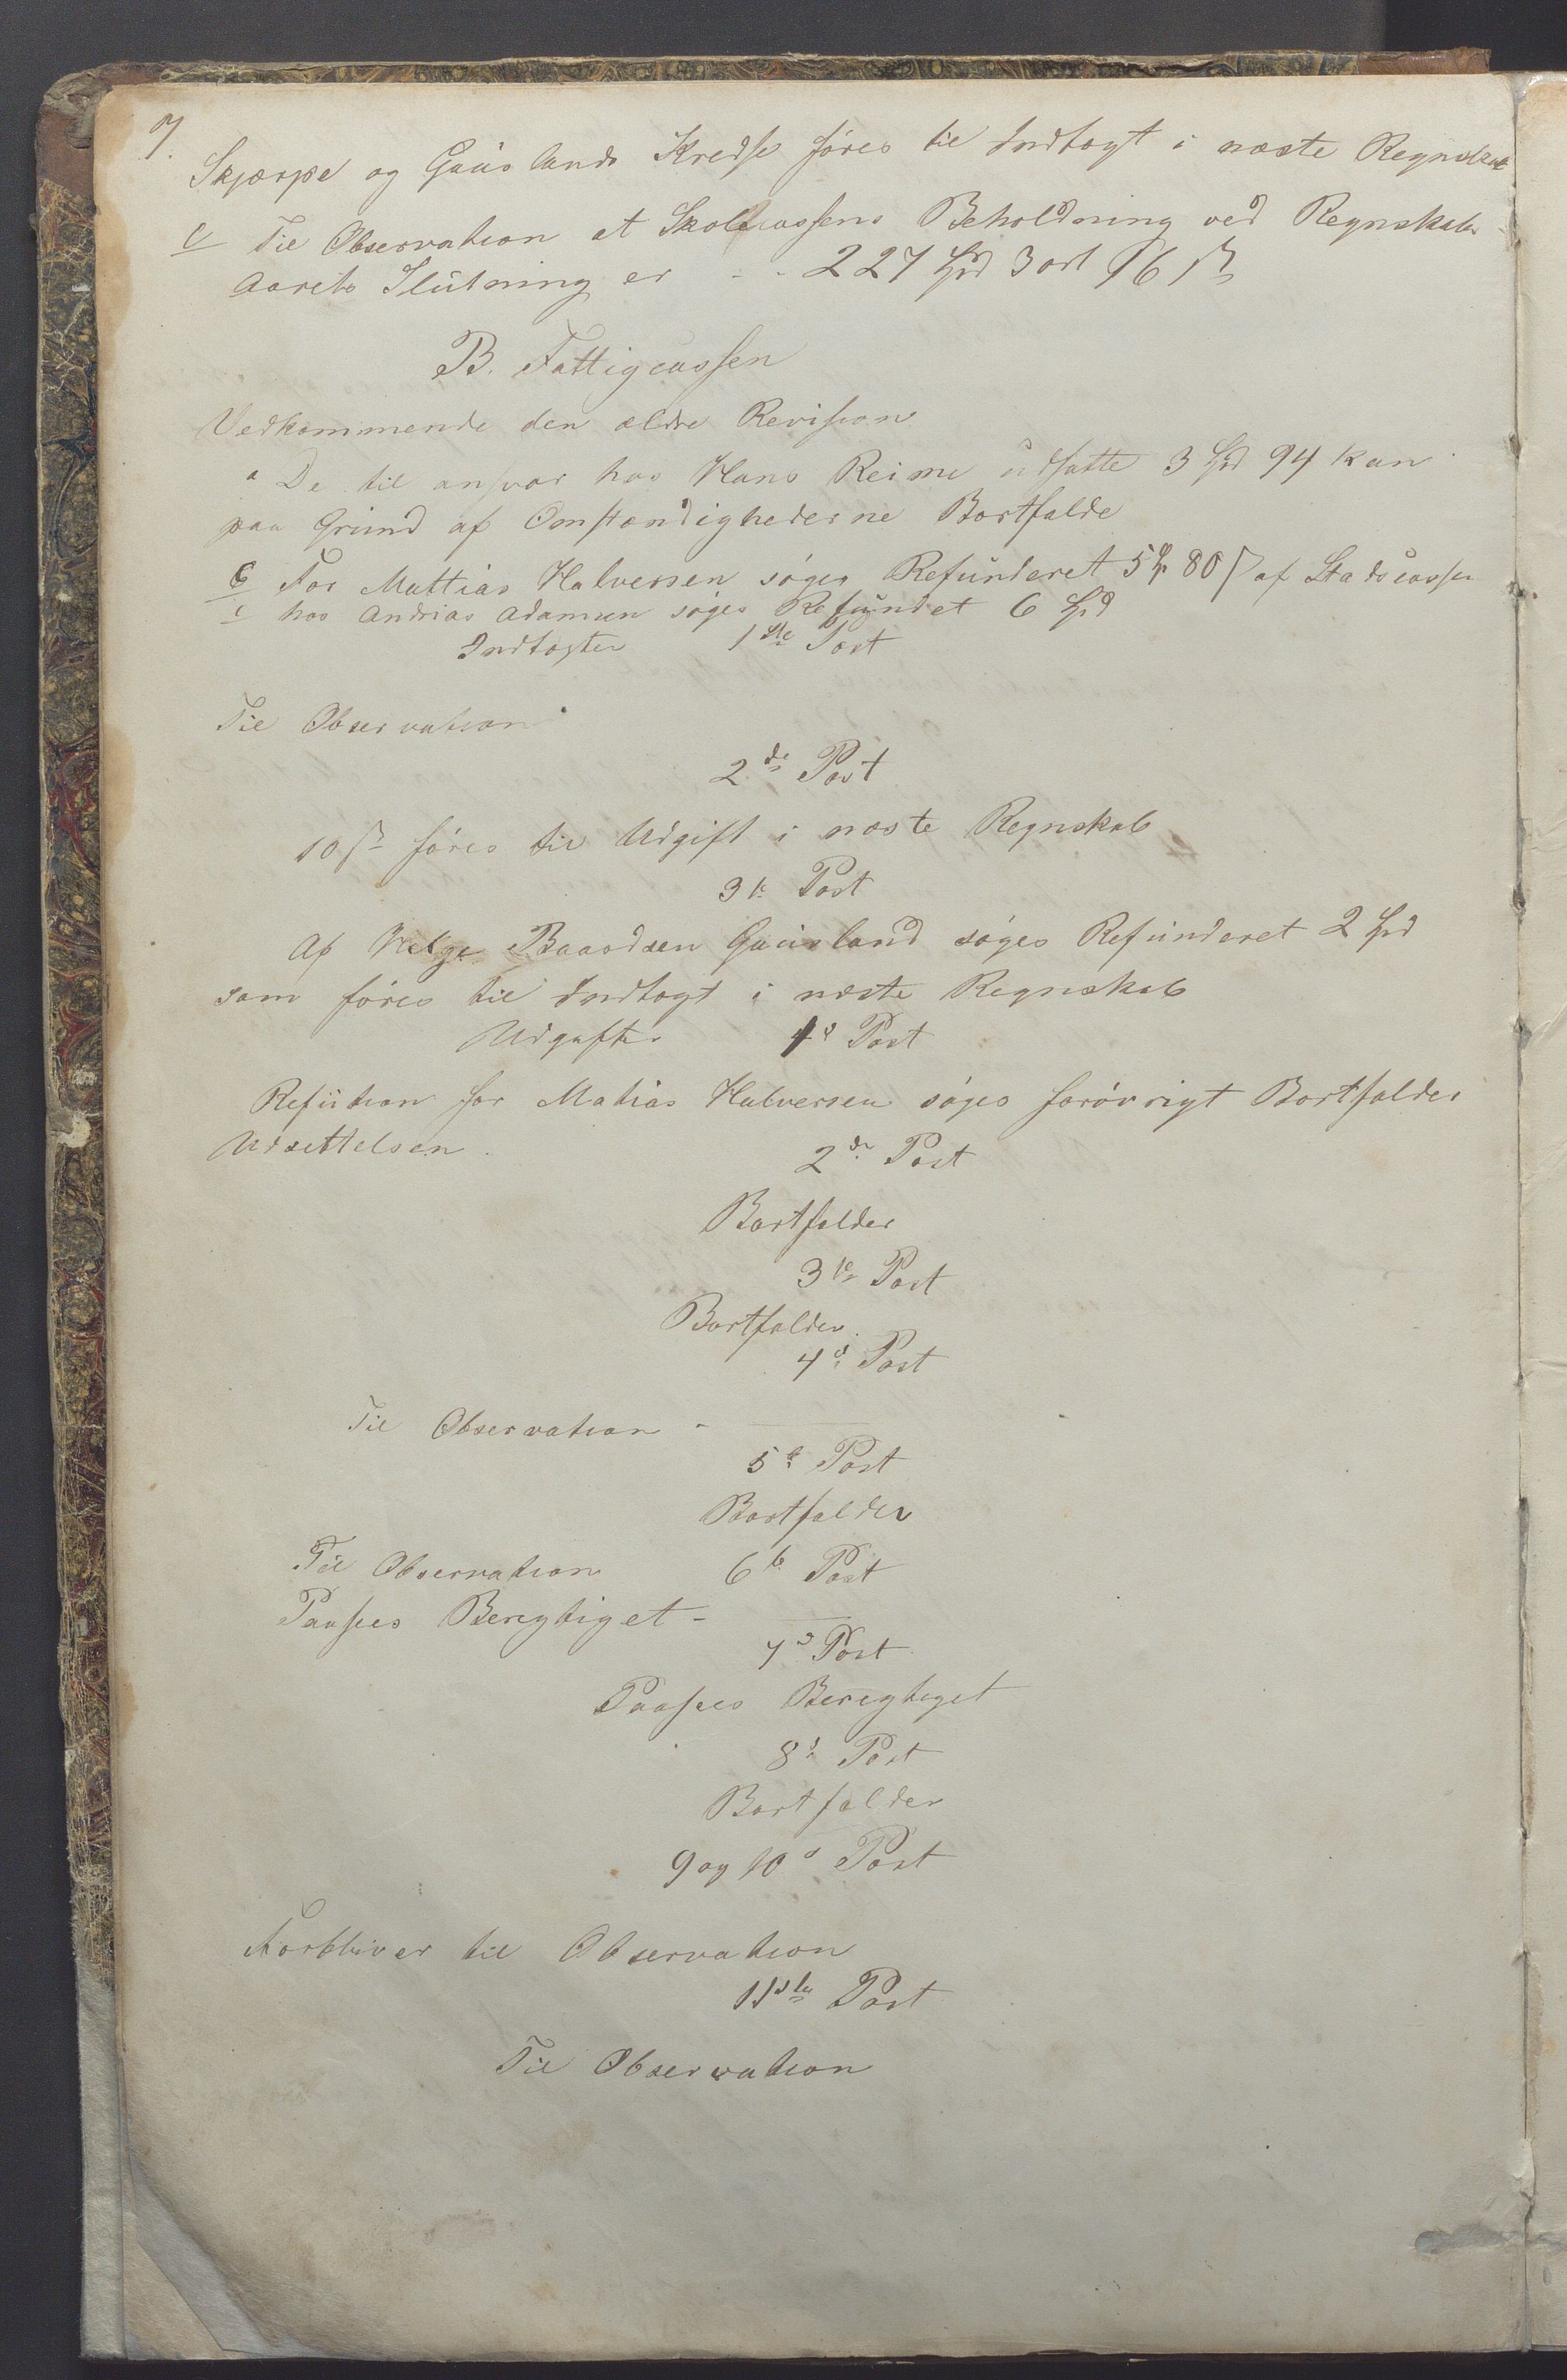 7.
Skjærpe og Gaüslands Kredse föres til Indtægt i næste Regnskab
c Til Observation at Skolecassens Beholdning ved Regnskabs-
Aarets Slütning er - - 227 Spd 3 ort 16 ß
B. Fattigcassen
Vedkommende den ældre Revision
a De til ansvar hos Hans Reime üdsatte 3 Spd 94 kan
paa Gründ af Omstændighederne Bortfalde
C For Mattias Halversen söges Refünderet 5 Sp 80 ß af Stadscassen
i hos Andrias Adamsen söges Refündet 6 Spd
Indtægter 1ste Post
Til Observation
2de Post
10 ß föres til Udgift i næste Regnskab
3de Post
Af Helge Baardsen Gaüsland söges Refünderet 2 Spd
som föres til Indtægt i næste Regnskab
Udgifter 1e Post
Refütion for Matias Halversen söges forövrigt Bortfalder
Udsettelsen.
2de Post
Bortfalder
3de Post
Bortfalder.
4de Post
Til Observation -
5te Post
Bortfalder
Til Observation 6te Post
Paasees Berigtiget -
7de Post
Paasees Berigtiget
8de Post
Bortfalder
9 og 10de Post
Forbliver til Observation
11ste Post
Til Observation